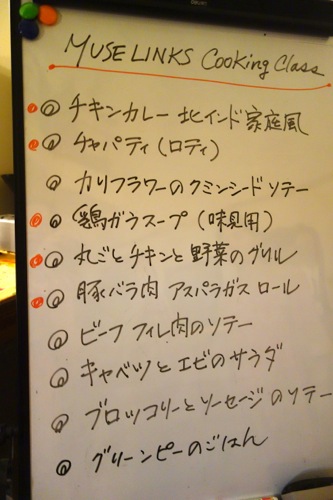 MUSE LINKS Cooking Class
◎ チキンカレー 北インド家庭風
◎ チャパティ (ロティ)
◎ カリフラワーのクミンシードソテー
◎ 鶏ガラスープ (味見用)
◎ 丸ごとチキンと野菜のグリル
◎ 豚バラ肉 アスパラガス ロール
◎ ビーフ フィレ肉のソテー
◎ キャベツとエビのサラダ
◎ ブロッコリーとソーセージのソテー
◎ グリーンピーのごはん